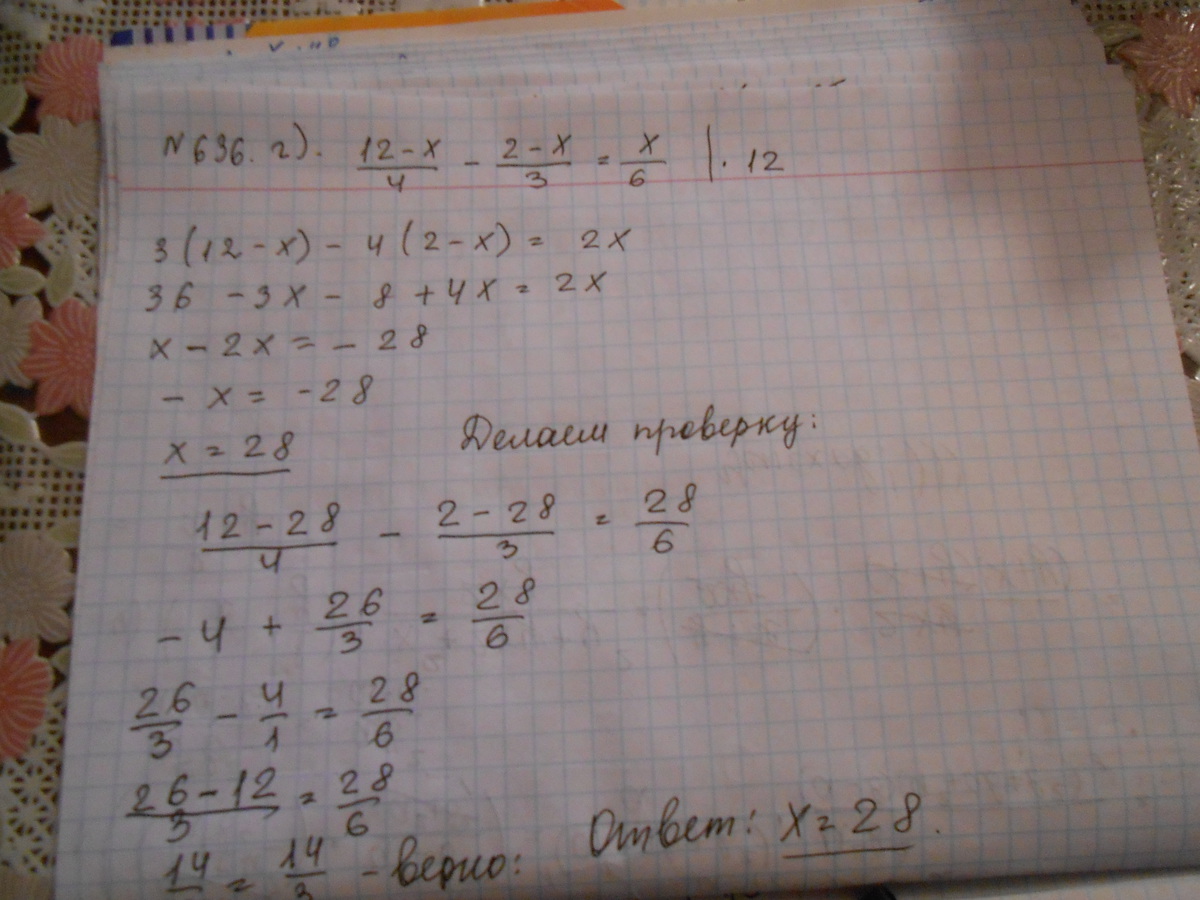 №636. г). (12-x)/4 - (2-x)/3 = x/6 | · 12
3(12-x) - 4(2-x) = 2x
36 - 3x - 8 + 4x = 2x
x - 2x = - 28
- x = -28
x = 28
Делаем проверку:
(12-28)/4 - (2-28)/3 = 28/6
-4 + 26/3 = 28/6
26/3 - 4/1 = 28/6
(26-12)/3 = 28/6
14/ = 14/3 - верно:
Ответ: x = 28.